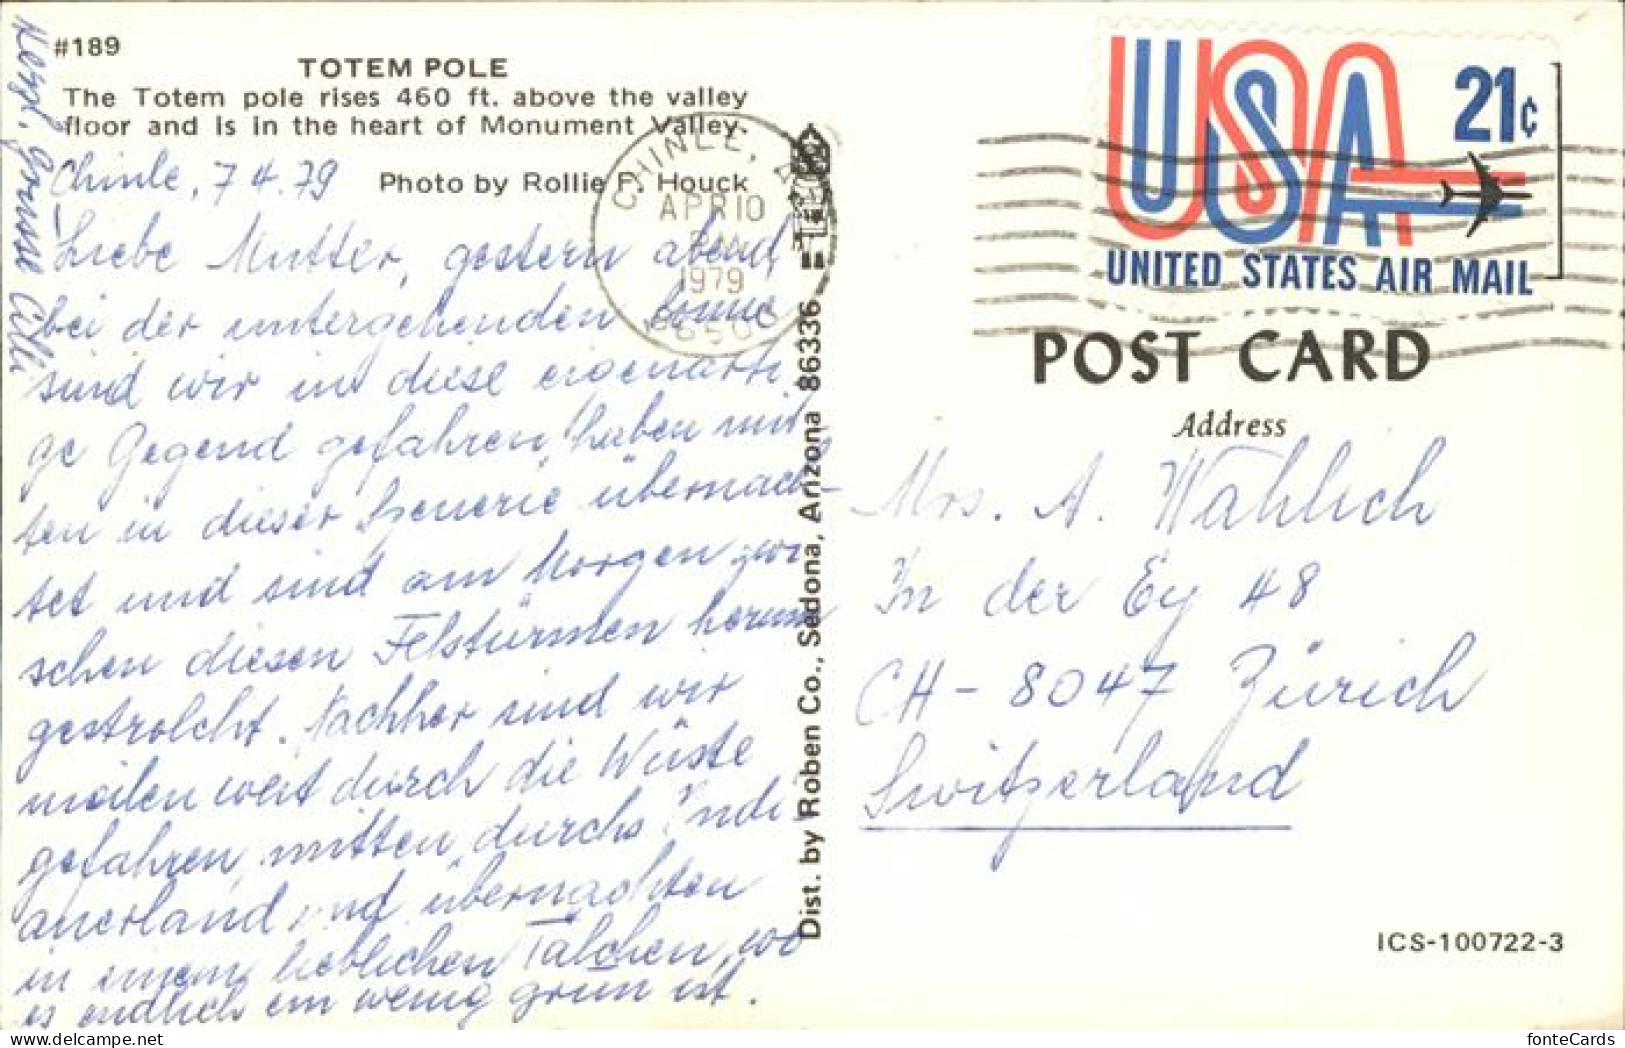 #189
TOTEM POLE
The Totem pole rises 460 ft. above the valley
floor and is in the heart of Monument Valley.
Photo by Rollie F. Houck
Chinle, 7.4.79
Liebe Mutter, gestern abend
bei der untergehenden Sonne
sind wir in diese eigenarti
ge Gegend gefahren, haben mit
ten in dieser Szenerie übernach-
tet und sind am Morgen zwi
schen diesen Felstürmen herum
gestrolcht. Nachher sind wir
meilenweit durch die Wüste
gefahren, mitten durchs Indi
anerland und übernachten
in einem lieblichen Tälchen, wo
es endlich ein wenig grün ist.
Herzl. Grüsse Cilli
CHINLE, AZ
APR 10
1979
86503
Dist. by Roben Co., Sedona, Arizona 86336
USA
21¢
UNITED STATES AIR MAIL
POST CARD
Address
Mrs. A. Wahlich
In der Ey 48
CH-8047 Zürich
Switzerland
ICS-100722-3
delcampe.net
fonteCards